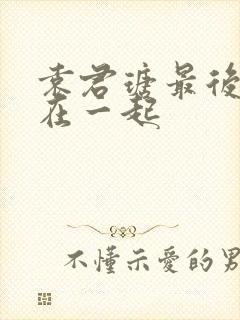 袁君瑭最後
在一起
不懂示愛的男